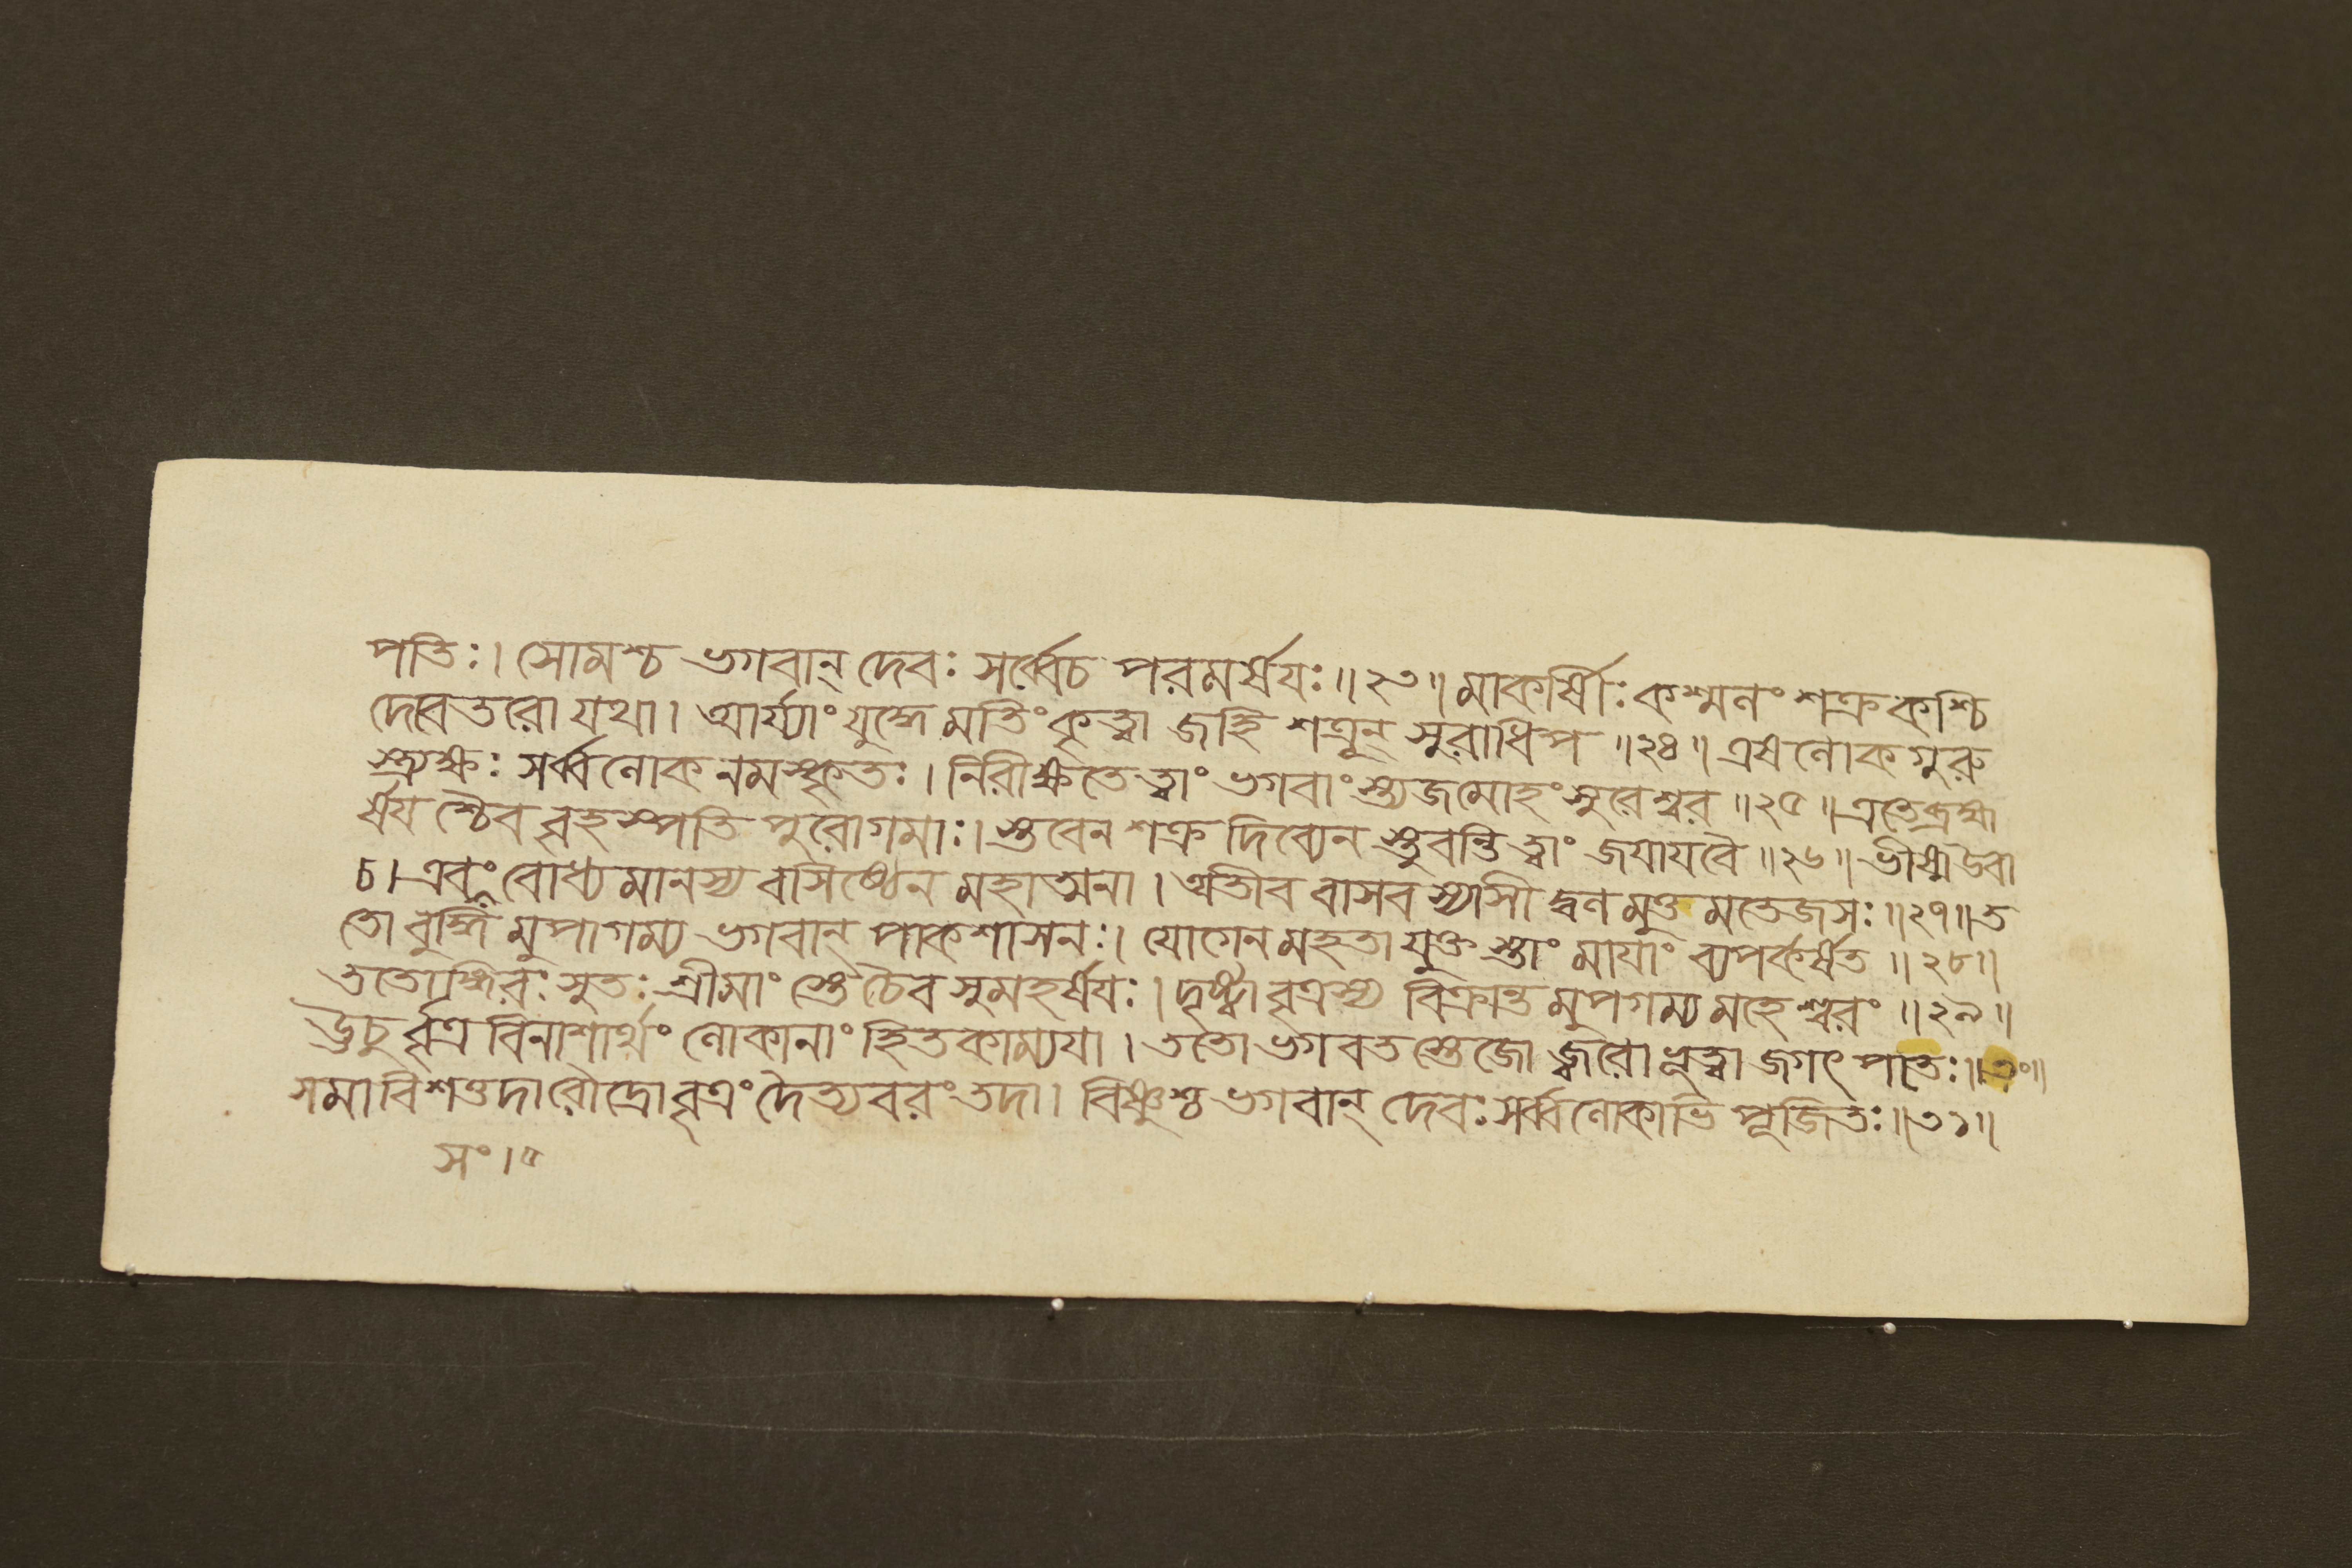 পতিঃ। সোমশ্চ ভগবান্ দেবঃ সর্ব্বেচ পরমর্ষযঃ॥২৩॥ মাকর্ষীঃ কশ্মলং শক্র কশ্চি
দেবেতরো যথা। আর্য্যাং যুদ্ধে মতিং কৃত্বা জহি শত্রূন্ সুরাধিপ॥২৪॥ এষ লোক গুরু
স্ত্র্যক্ষঃ সর্ব্বলোক নমস্কৃতঃ। নিরীক্ষতে ত্বাং ভগবাং স্ত্যজ মোহং সুরেশ্বর॥২৫॥ এতে ব্রহ্ম
র্ষয শ্চৈব বৃহস্পতি পুরোগমাঃ। স্তবেন শক্র দিব্যেন স্তুবন্তি ত্বাং জযাযবৈ॥২৬॥ ভীষ্ম উবা
চ। এবং সংবোধ্যমানস্য বাসিষ্ঠেন মহাত্মনা। অতীব বাসবস্যাসী দ্বল মুত্তমতেজসঃ॥২৭॥ ত
তো বুদ্ধি মুপাগম্য ভগবান্ পাকশাসনঃ। যোগেন মহতা যুক্ত স্তাং মাযাং ব্যপকর্ষত॥২৮॥
ততোঙ্গিরঃ সুতঃ শ্রীমাং স্তে চৈব সুমহর্ষযঃ। দৃষ্ট্বা বৃত্রস্য বিক্রান্ত মুপগম্য মহেশ্বরং॥২৯॥
ঊচু র্ব্বৃত্র বিনাশার্থং লোকানাং হিতকাম্যযা। ততো ভগবত স্তেজো জ্বরো ভূত্বা জগৎ পতেঃ॥৩০॥
সমাবিশত্তদা রৌদ্রো বৃত্রং দৈত্যবরং তদা। বিষ্ণুশ্চ ভগবান্ দেবঃ সর্ব্বলোকাভি পূজিতঃ॥৩১॥
সং।৫